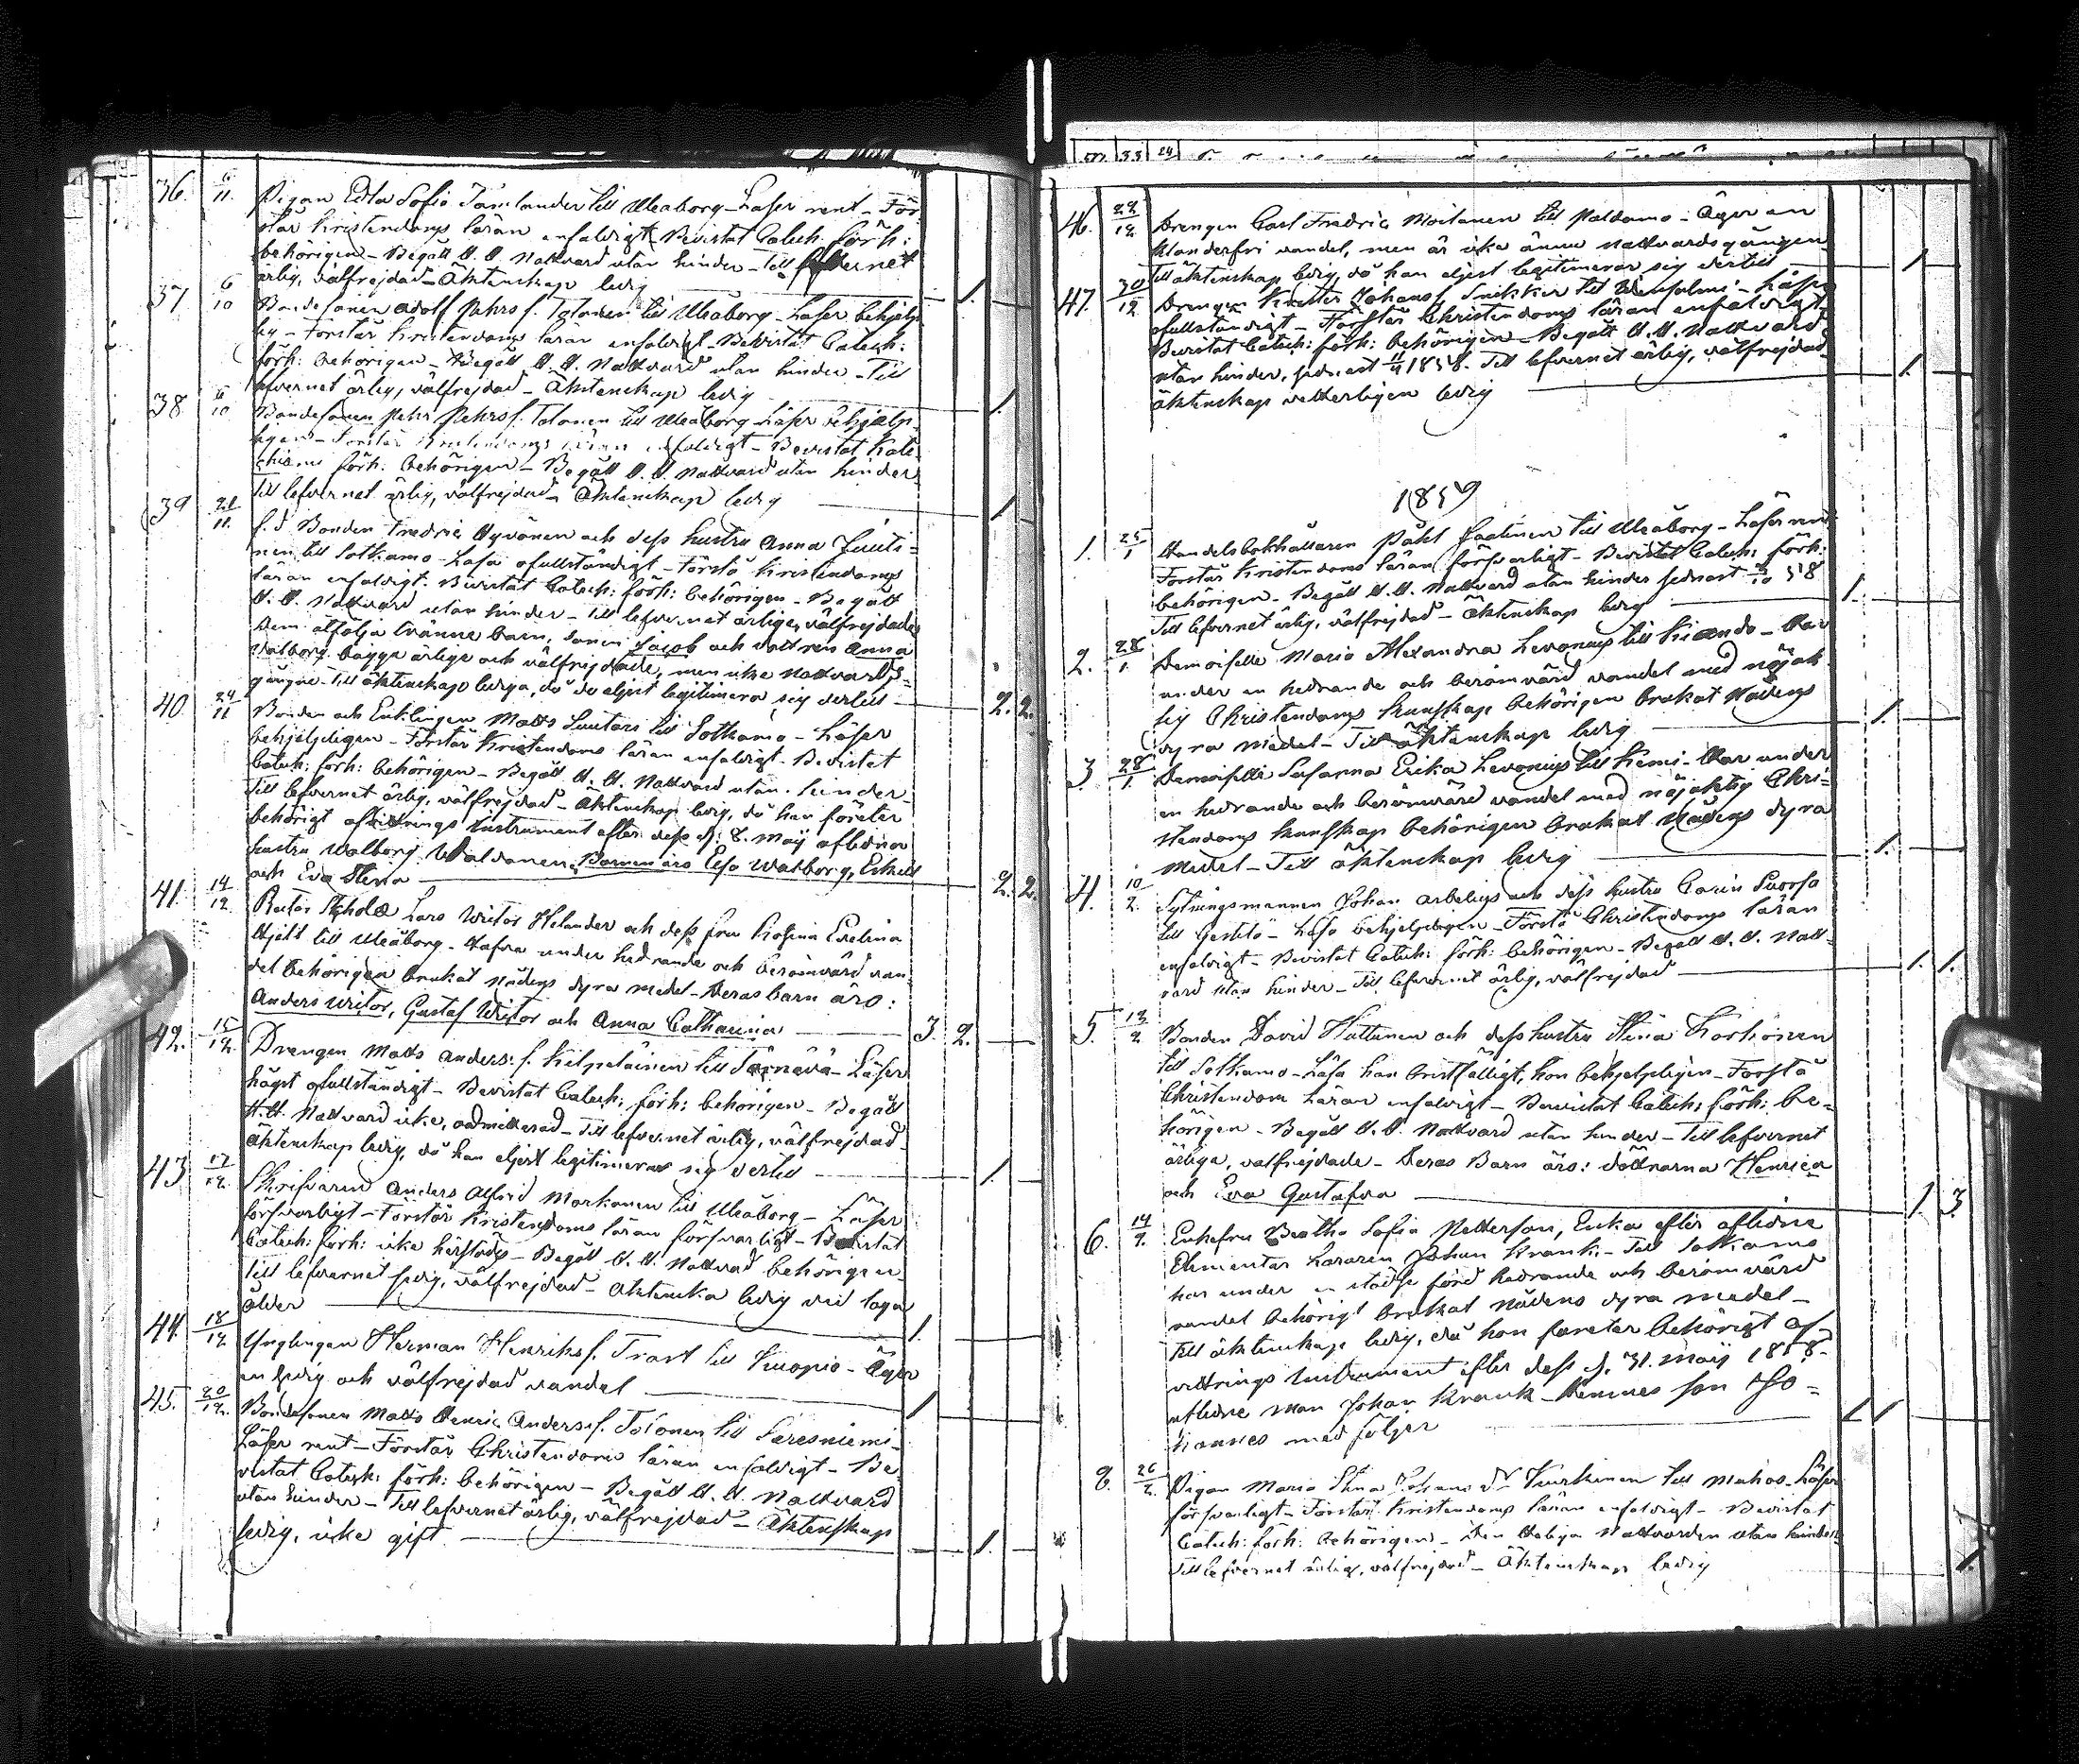 36. 6/11. Pigan Edla Sofia Tamlander till Uleåborg – Läser rent – För
står Kristendoms läran enfaldigt – Bevistat Catech: förh:
behörigen – Begått H. H. Nattvard utan hinder – Till lefvernet
ärlig, välfrejdad – Äktenskap ledig 1.
37 6/10 Bondesonen Adolf Pehrs s. Tolonen till Uleåborg – Läser behjelp
lig – Förstår Kristendoms läran enfaldigt – Bevistat Catech:
förh: behörigen – Begått H. H. Nattvard utan hinder – Till
lefvernet ärlig, välfrejdad – Äktenskap ledig 1.
38 6/10 Bondesonen Pehr Pehrs s. Tolonen till Uleåborg – Läser behjelp-
ligen – Förstår Kristendoms läran enfaldigt – Bevistat Kate
chismi förh: behörigen – Begått H. H. Nattvard utan hinder
Till lefvernet ärlig, välfrejdad – Äktenskap ledig 1.
39 21/11. f. d. Bonden Fredric Hyvönen och dess hustru Anna Juuti-
nen till Sotkamo – Läsa ofullständigt – Förstå Kristendoms
läran enfaldigt. Bevistat Catech: förh: behörigen – Begått
H. H. Nattvard utan hinder – Till lefvernet ärlige, välfrejdade
Dem åtfölja tvänne barn, sonen Jacob och dottren Anna
Walborg, bägge ärlige och välfrejdade, men icke nattvards-
gångne – Till äktenskap lediga, då de eljest legitimera sig dertill 2. 2.
40. 24/11 Bonden och Enklingen Matts Luutari till Sotkamo – Läser
behjelpligen – Förstår Kristendoms läran enfaldigt – Bevistat
Catech: förh: behörigen – Begått H. H. Nattvard utan hinder –
Till lefvernet ärlig, välfrejdad – Äktenskap ledig, då han företer
behörigt afvittrings Instrument efter dess d. 8. Maij aflidna
hustru Walborg Moilanen. Barnen äro Elsa Walborg, Eskill
och Eva Stena 2. 2.
41. 14/12 Rector Scholæ Lars Wictor Helander och dess fru Rosina Evelina
Hjelt till Uleåborg – Hafva under hedrande och berömvärd van
del behörigen brukat nådens dyra medel – Deras barn äro:
Anders Wictor, Gustaf Wictor och Anna Catharina 3. 2.
42. 15/12. Drengen Matts Anders: s. Kelpeläinen till Tornävä – Läser
högst ofullständigt – Bevistat Catech: förh: behörigen – Begått
H. H. Nattvard icke, admitterad – Till lefvernet ärlig, välfrejdad –
Äktenskap ledig, då han eljest legitimerar sig dertill 1.
43 17/12. Skrifvaren Anders Alfrid Markanen till Uleåborg – Läser
försvarligt – Förstår Kristendoms läran försvarligt – Bevistat
Catech: förh: icke härstädes – Begått H. H. Nattvard behörigen.
Till lefvernet sedig, välfrejdad – Äktenska ledig vid laga
ålder 1.
44. 18/12 Ynglingen Herman Henriks s. Trast till Kuopio – Äger
en sedig och välfrejdad vandel 1
45. 20/12. Bondesonen Matts Henric Anders s. Tolonen till Säresniemi –
Läser rent – Förstår Christendoms läran enfaldigt – Be
vistat Catech: förh: behörigen – Begått H. H. Nattvard
utan hinder – Till lefvernet ärlig, välfrejdad – Äktenskap
ledig, icke gift 1.
46. 22/12. Drengen Carl Fredric Moilanen till Paldamo – Äger en
klanderfri vandel, men är icke ännu nattvardsgången
Till äktenskap ledig, då han eljest legitimerar sig dertill 1
47. 30/12 Drengen Krister Johans s. Snikker till Idensalmi – Läser
ofullständigt – Förstår Christendoms läran enfaldigt
Bevistat Catech: förh: behörigen – Begått H. H. Nattvard
utan hinder, sednast 11/4 1858. Till lefvernet ärlig, välfrejdad
äktenskap vetterligen ledig 1.
1859
1. 25/1 Handelsbokhållaren Påhl Jaatinen till Uleåborg – Läser rent
Förstår Kristendoms läran försvarligt – Bevistat Catech: förh:
behörigen – Begått H. H. Nattvard utan hinder sednast 58
Till lefvernet ärlig, välfrejdad – Äktenskap ledig 1.
2. 28/1. Demoiselle Maria Alexandra Levonius till Kiando – Har
under en hedrande och berömvärd vandel med nöjak
lig Christendoms kunskap behörigen brukat Nådens
dyra medel – Till äktenskap ledig 1.
3 28/1. Demoiselle Susanna Erika Levonius till Kemi – Har under
en hedrande och berömvärd vandel med nöjaktig Chri-
stendoms kunskap behörigen brukat Nådens dyra
medel – Till äktenskap ledig 1.
4. 10/2. Sytningsmannen Johan Arbelius och dess hustru Carin Suorsa
till – Läsa behjelpligen – Förstå Christendoms läran
enfaldigt – Bevistat Catech: förh: behörigen – Begått H. H. Natt-
vard utan hinder – Till lefvernet ärlig, välfrejdad 1. 1.
5. 13/2 Bonden David Huttunen och dess hustru Stina Korhonen
till Sotkamo – Läsa han bristfälligt, hon behjelpligen – Förstå
Christendoms Läran enfaldigt – Bevistat Catech: förh: be-
hörigen – Begått H. H. Nattvard utan hinder – Till lefvernet
ärliga, välfrejdade – Deras Barn äro: döttrarna Henrica
och Eva Gustafva 1. 3.
6. 14/2. Enkefru Beatha Sofia Pettersson, Enka efter aflidne
Elementar Läraren Johan Krank – Till Sotkamo
har under en städse förd hedrande och berömvärd
vandel behörigt brukat nådens dyra medel –
Till äktenskap ledig, då hon företer behörigt af-
vittrings Instrument efter dess d. 31. Maij 1858
aflidne man Johan Krank – Hennes son Jo-
hannes medföljer 1 1
8. 26/2. Pigan Maria Stina Johans Dr Kurkinen till Muhos – Läser
försvarligt – Förstår Kristendoms läran enfaldigt – Bevistat
Catech: förh: behörigen – Den Heliga Nattvarden utan hinder
Till lefvernet ärlig, välfrejdad – Äktenskap ledig 1.